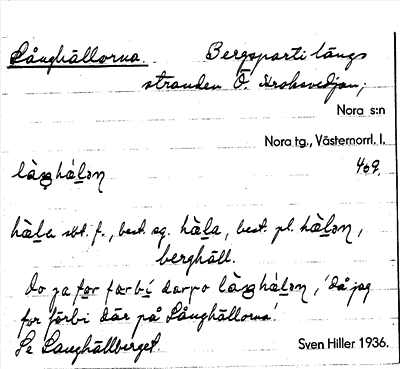 Långhällorna. Bergsparti längs
stranden Ö. Kroksvedjan;
Nora s:n
Nora tg., Västernorrl. l.
469.
làŋhá̤lən
hà̤la sbt. f., best. sg. hà̤la, best. pl. hà̤lən,
berghäll.
do ja fo̤r fœrbí dœrpo làŋhá̤lən, 'då jag
for förbi där på Långhällorna'.
Se Långhällberget.
Sven Hiller 1936.